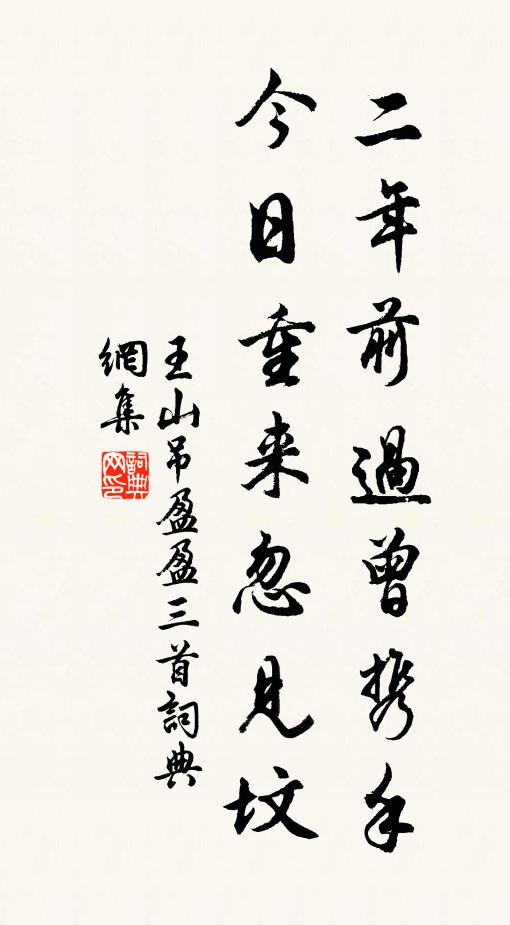 二年前過曾携手
今日重来忽見坟
王山吊盈盈三首詞典
網集
詞典网印